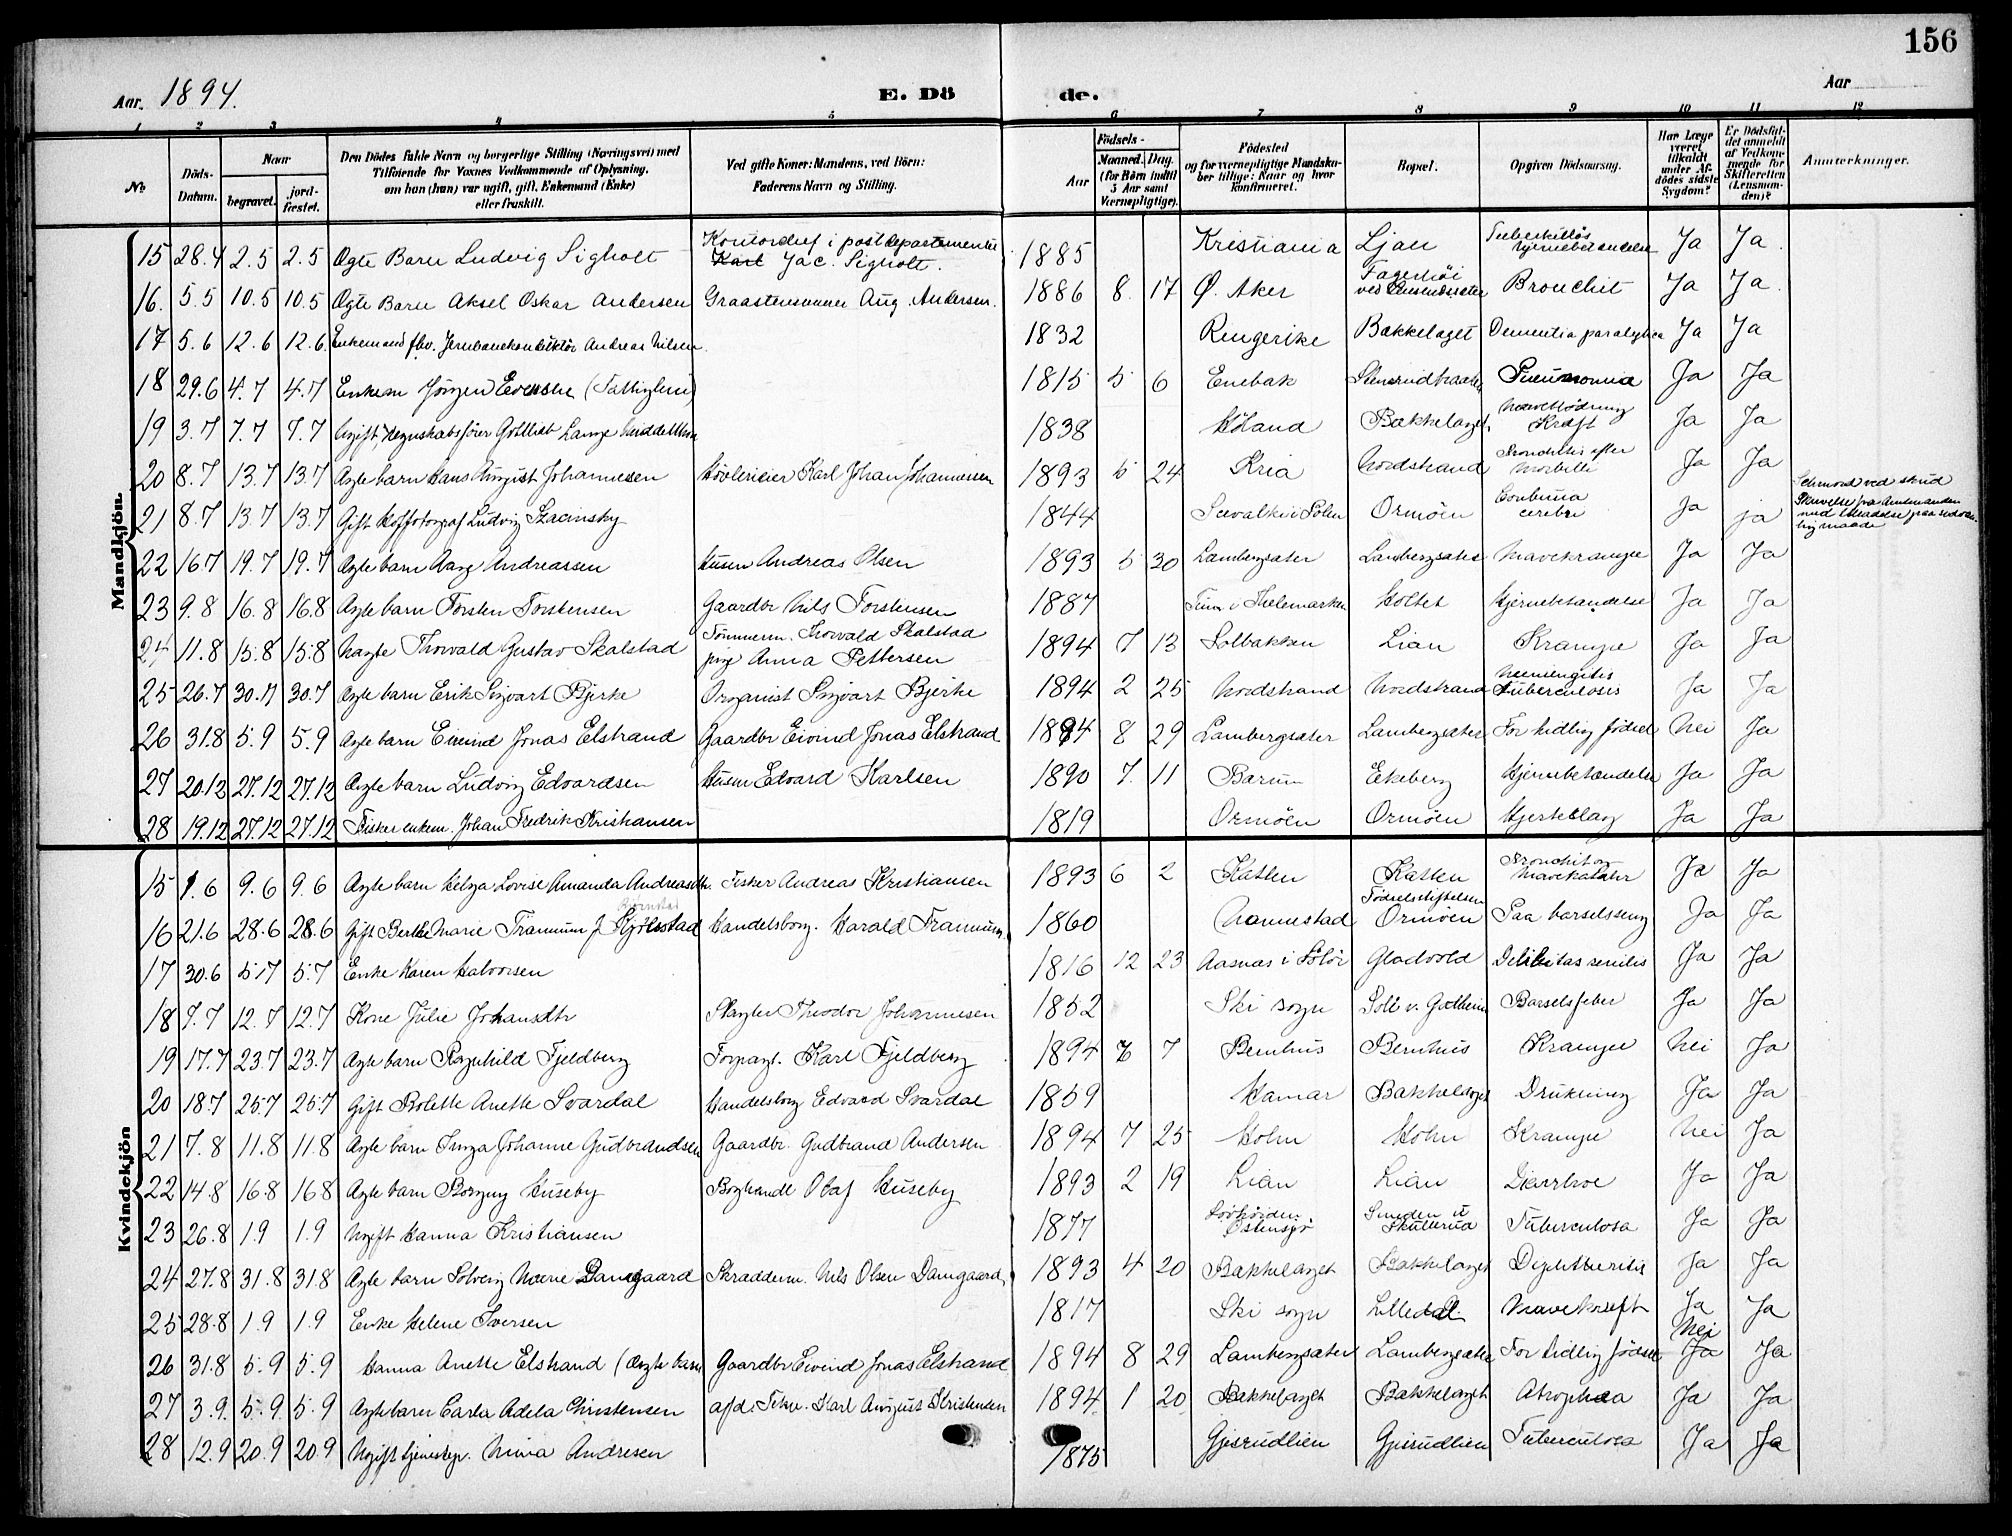 156
Aar. 1894.
E. Dö de.
Aar
1 2 3 4 5 6 7 8 9 10 11 12
No
Döds-Datum.
Naar begravet. jordfæstet.
Den Dödes fulde Navn og borgerlige Stilling (Næringsvei) med Tilföiende for Voxnes Vedkommende af Oplysning, om hun (han) var ugift, gift, Enkemand (Enke) eller fraskilt.
Ved gifte Koner: Mandens, ved Börn: Faderens Navn og Stilling.
Födsels-
Aar
Maaned. Dag. (for Börn indtil 5 Aar samt Værnepligtige).
Födested og for værnepligtige Mandskaber tillige: Naar og hvor konfirmeret.
Bopæl.
Opgiven Dödsaarsag.
Har Læge været tilkaldt under Afdödes sidste Sygdom?
Er Dödsfaldet anmeldt af Vedkommende for Skifteretten (Lensmanden)?
Anmærkninger.
Mandkjön.
15 28.4 2.5 2.5 Ægte Barn Ludvig Sigholt Kontorchef i postdepartementet Karl Jac. Sigholt. 1885 Kristiania Ljan Tuberkuløs hjernebetændelse Ja Ja.
16. 5.5 10.5 10.5 Ægte Barn Aksel Oskar Andersen Graastensminer Aug. Andersen. 1886 8. 17 Ø. Aker Fagerhøi ved Bronchit Ja Ja.
17 5.6 12.6 12.6 Enkemand fhv. Jernbanekonduktør Andreas Nilsen. 1832 Ringerike Bækkelaget Dementia paralytica Ja Ja
18 29.6 4.7 4.7 Enkem Jørgen Evensen (Fattiglem) 1815 5 6 Enebak Stensrudbraaten Pneumonia Ja Ja
19 3.7 7.7 7.7 Ugift, Regnskabsfører Gottlieb Lange 1838 Høland Bækkelaget. Maveblødning Kræft Ja Ja
20 8.7 13.7 13.7 Ægte barn Hans August Johannesen Høvleri Karl Johan Johannesen 1893 5 24 Kria Nordstrand Bronchitis efter Morbilli Ja Ja
21 8.7 13.7 13.7 Gift Hoffotograf Ludvig Szacinsky 1844 Suvalki i Polen Ormøen cerebri Ja ja Selvmord ved skud Skrivelse fra Amtmanden med tilladelse paa sedvanlig maade
22 16.7 19.7 19.7 Ægte barn Aage Andreassen Husm Andreas Olsen 1893 5 30 Lambergsæter Lambergsæter Mavekrampe Ja Ja
23 9.8 16.8 16.8 Ægte barn Torsten Torstensen Gaardbr Nils Torstensen 1887 Tinn i Thelemarken Holtet Hjernebetændelse Ja Ja
24 11.8 15.8 15.8 Uægte Thorvald Gustav Skalstad Tømmerm. Thorvald Skalstad pige Anna Pettersen 1894 7 13 Solbakken Lian Krampe Ja Ja
25 26.7 30.7 30.7 Ægte barn Erik Sigvart Bjerke Organist Sigvart Bjerke 1894 2 25 Nordstrand Nordstrand Meningitis tuberculosis Ja Ja
26 31.8 5.9 5.9 Ægte barn Eivind Jonas Elstrand Gaardbr Eivind Jonas Elstrand 1894 8 29 Lambergsæter Lambergsæter For tidlig fødsel Nei Ja
27 20.12 27.12 27.12 Ægte barn Ludvig Edvardsen Husm Edvard Karlsen 1890 7. 11 Bærum Ekeberg Hjernebetændelse Ja Ja
28 19.12 27.12 27.12 Fisker enkem. Johan Fredrik Kristiansen 1819 Ormøen Ormøen Hjerteslag Ja Ja
Kvindekjön
15 1.6 9.6 9.6 Ægte barn Helga Lovise Amanda Andreasdtr. Fisker Andreas Kristiansen 1893 6 2 Katten Katten Bronchit og Mavekatarr Ja Ja
16 21.6 28.6 28.6 Gift Berthe Marie Tramum f Handelsborg. Harald Tramum. 1860 Nannestad Fødselsstiftelsen Ormøen Paa barselsseng Ja Ja
17 30.6 5.7 5.7 Enke Karen Halvorsen 1816 12 23 Aasnæs i Solør Gladvold Debilitas senilis Ja Ja
18 9.7 12.7 12.7 Kone Julie Johansdtr Slagter Theodor Johannesen 1852 Ski sogn Barselsfeber Ja Ja
19 17.7 23.7 23.7 Ægte barn Ragnhild Fjeldberg Forpagt. Karl Fjeldberg 1894 7 Bernhus Bernhus Krampe Nei Ja
20 18.7 25.7 25.7 Gift Bolette Anette Svardal Handelsborg Edvard Svardal 1859 Hamar Bækkelaget Drukning Ja Ja
21 7.8 11.8 11.8 Ægte barn Inga Johanne Gudbrandsen Gaardbr. Gudbrand Andersen 1894 7 25 Holm Holm Krampe Nei Ja
22 14.8 16.8 16.8 Ægte barn Borgny Huseby Boghandl Olaf Huseby 1893 2 19 Lian Lian Diarrhoe Ja Ja
23 26.8 1.9 1.9 Ugift Hanna Kristiansen 1877 Østensjø Smeden u Skullerud Tuberculosa Ja Ja
24 27.8 31.8 31.8 Ægte barn Solveig Marie Damgaard Skrædderm. Nils Olsen Damgaard 1893 4 20 Bækkelaget Bækkelaget Diphtheritis Ja Ja
25 28.8 1.9 1.9 Enke Helene Iversen 1817 Ski sogn Lilledal. Mavekræft Ja Ja
26 31.8 5.9 5.9 Hanna Anette Elstrand (Ægte barn Gaardbr Eivind Jonas Elstrand 1894 8 29 Lambergsæter Lambergsæter For tidlig fødsel Nei Ja Ja
27 3.9. 5.9. 5.9 Ægte barn Carla Adela Christensen afd. Karl August Kristensen 1894. 1 20 Bækkelaget Bækkelaget Atrophia Ja Ja
28 12.9 20.9 20.9 Ugift tjenestep. Mina Andresen 1875 Gjersrudlien Gjersrudlien Tuberculosa Ja Ja